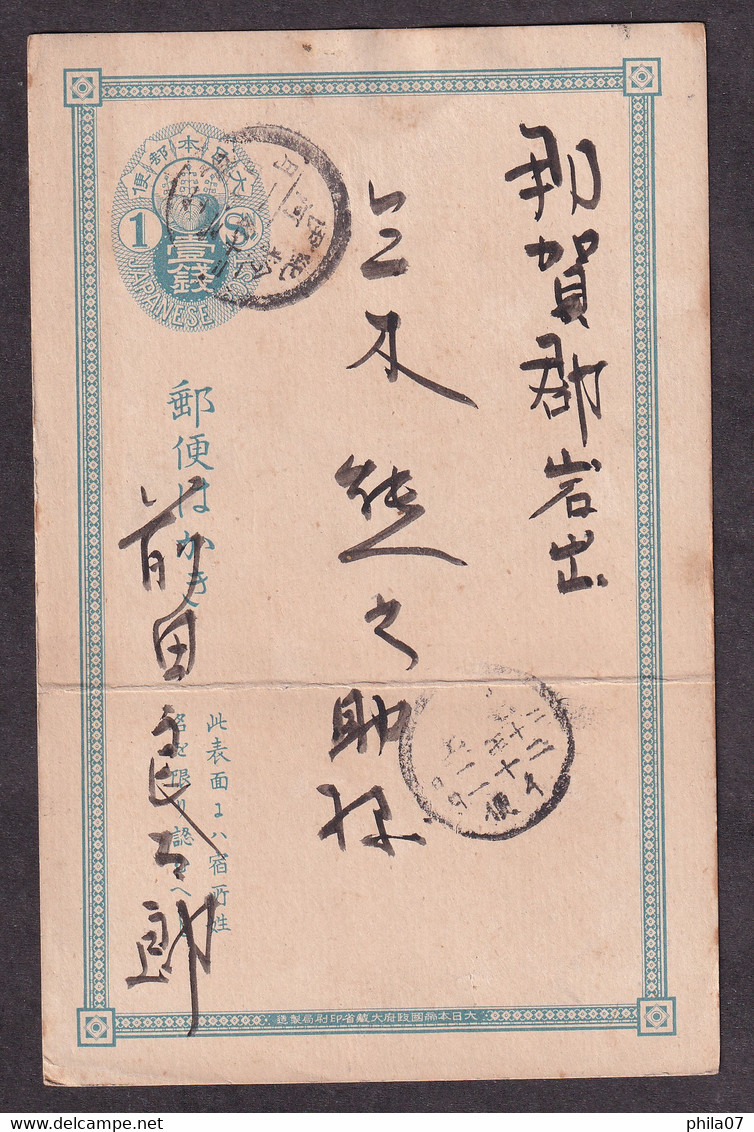 那賀郡岩出
三木熊之助様
前田良太郎
大日本郵便
1 S
壹錢
JAPANESE
郵便はかき
此表面ニハ宿所姓
名を限り認むへし
大日本帝國政府大藏省印刷局製造
phila07